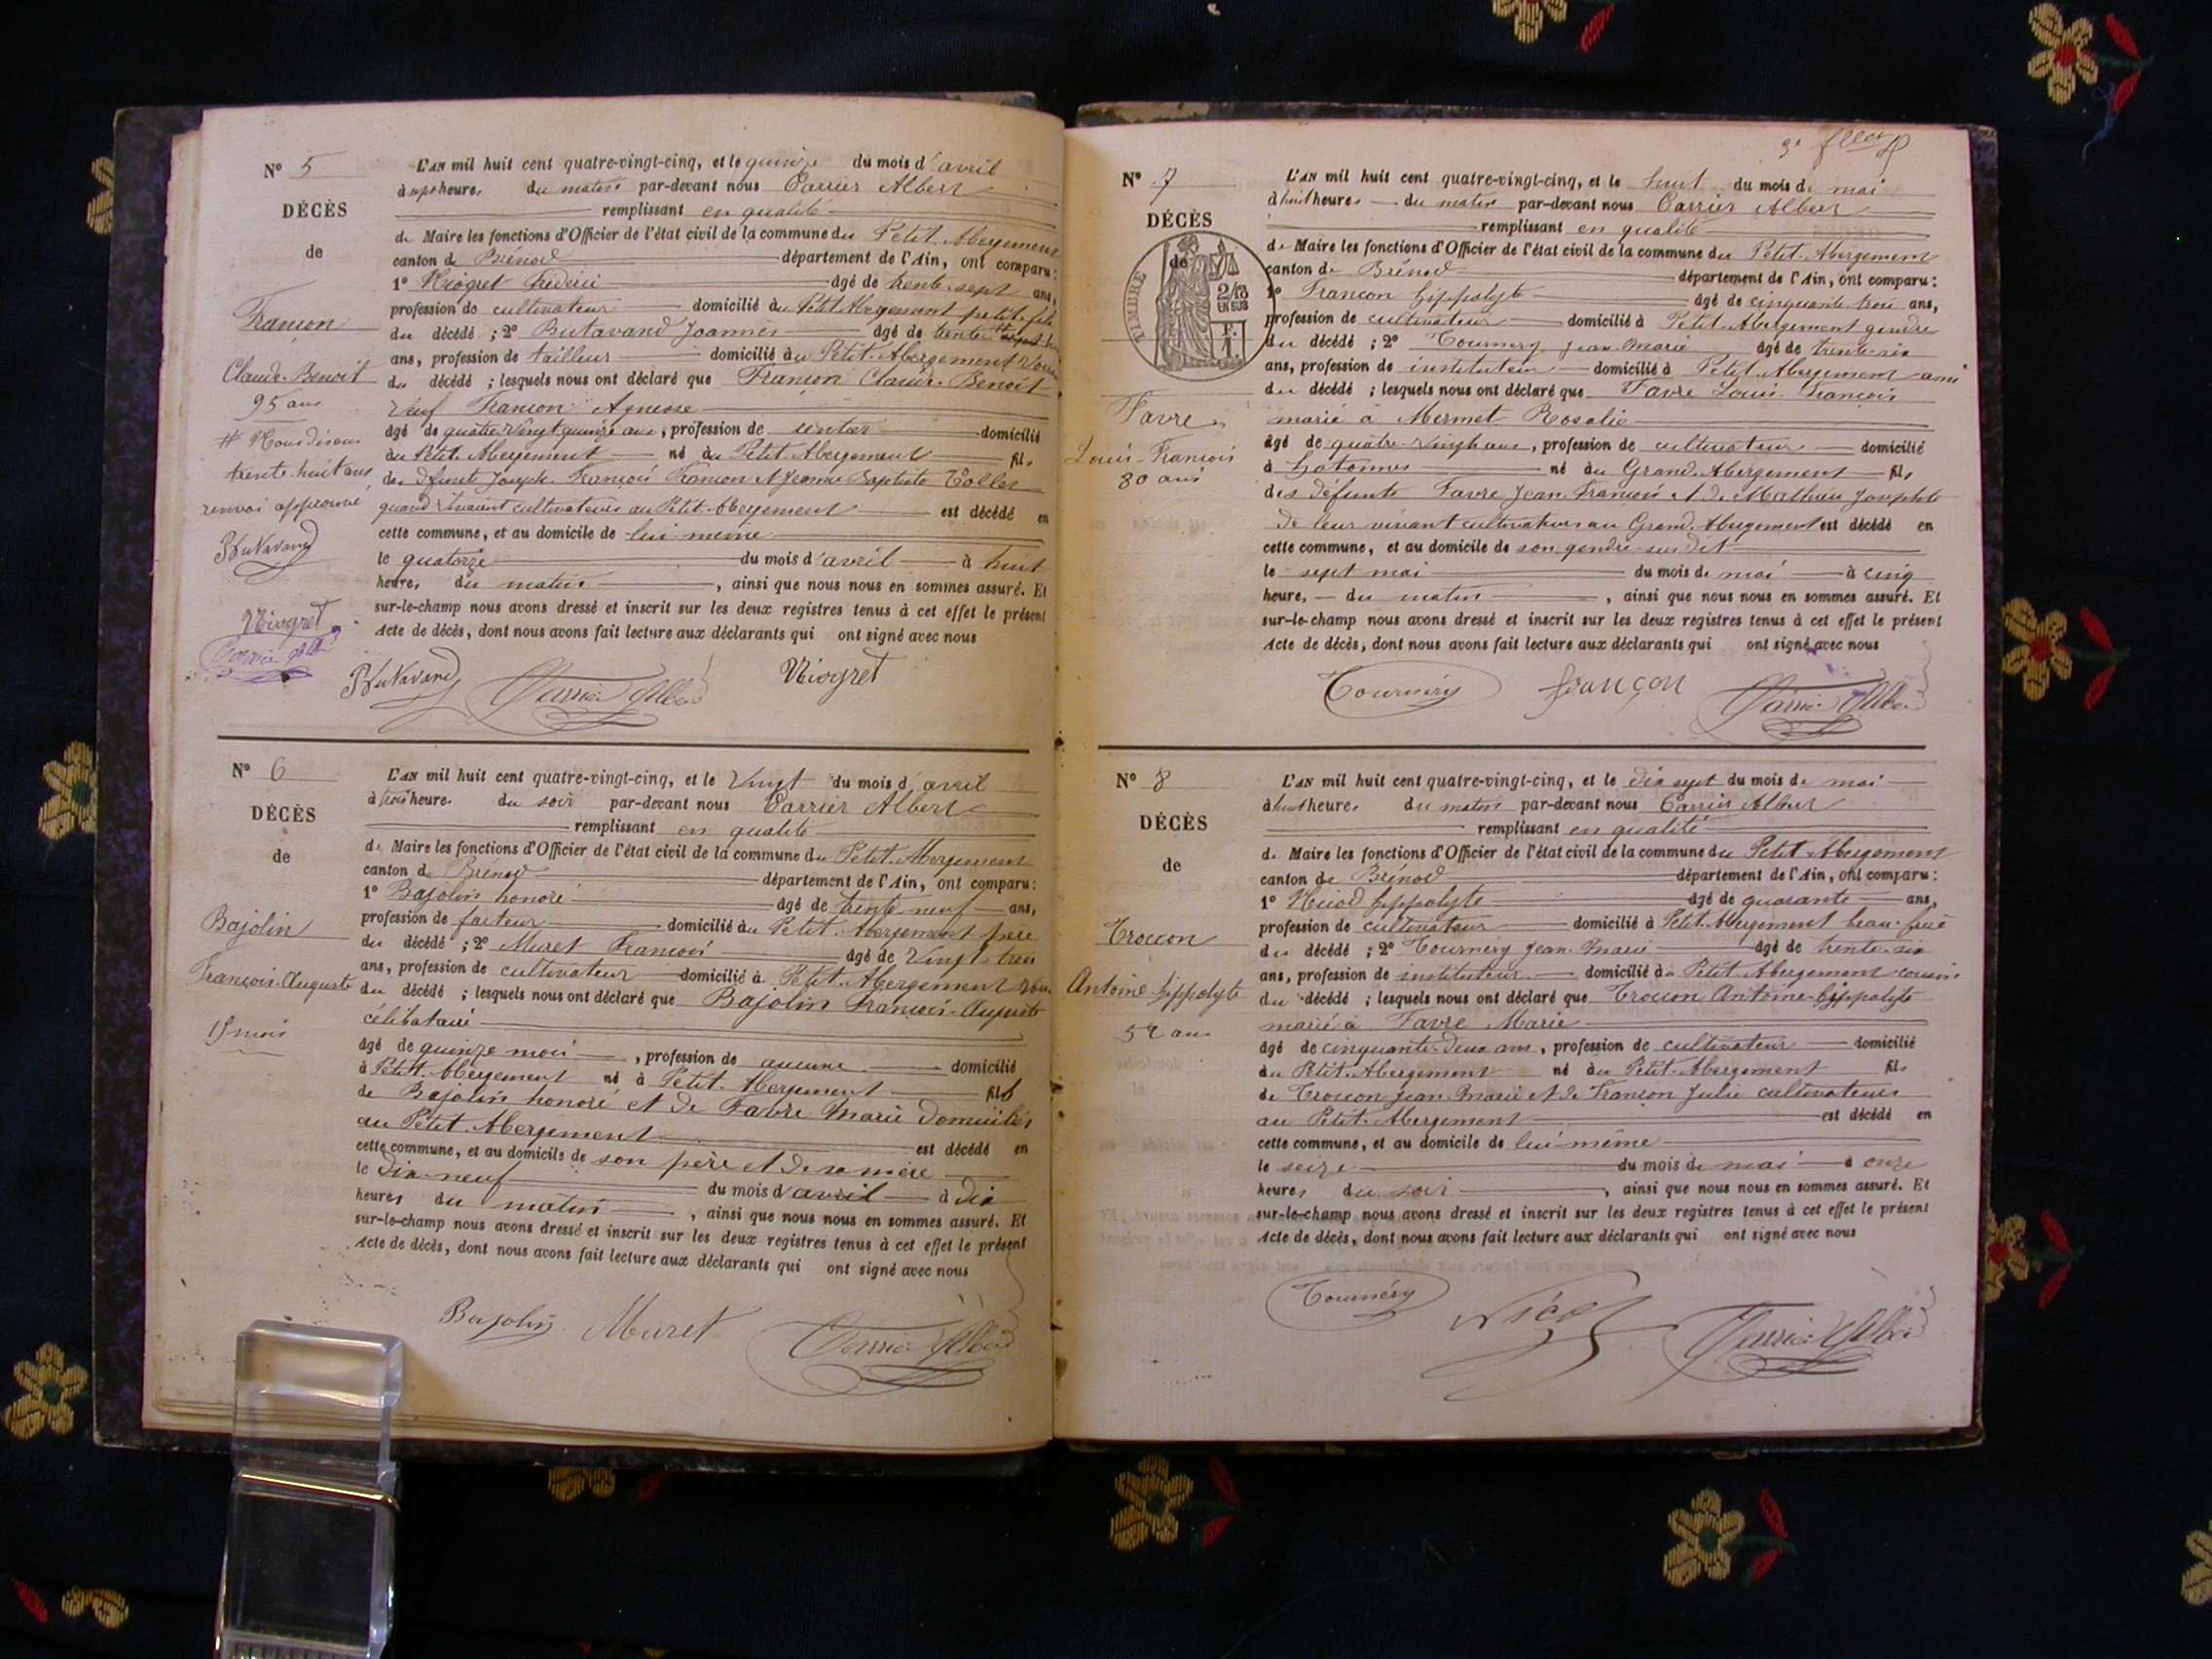 N° 5
DÉCÈS
de
Françon
Claude-Benoit
95 ans
# Nous disons
trente-huit ans
renvoi approuvé
Niogret
L'AN mil huit cent quatre-vingt-cinq, et le quinze du mois d'avril
à sept heures du matin par-devant nous Carrier Albert
remplissant en qualité
de Maire les fonctions d'Officier de l'état civil de la commune du Petit-Abergement
canton de Brénod département de l'Ain, ont comparu:
1° Niogret Frédéric âgé de trente-sept ans,
profession de cultivateur domicilié au Petit-Abergement petit-fils
du décédé ; 2° Butavand Joannès âgé de trente #
ans, profession de tailleur domicilié au Petit-Abergement voisin
du décédé ; lesquels nous ont déclaré que Françon Claude-Benoit
veuf Françon Agnesse
âgé de quatre-vingt-quinze ans, profession de rentier domicilié
au Petit-Abergement né au Petit-Abergement fils
des défunts Joseph-François Françon et Jeanne Baptiste Tollet
quand vivaient cultivateurs au Petit-Abergement est décédé en
cette commune, et au domicile de lui même
le quatorze du mois d'avril à huit
heures du matin, ainsi que nous nous en sommes assuré. Et
sur-le-champ nous avons dressé et inscrit sur les deux registres tenus à cet effet le présent
Acte de décès, dont nous avons fait lecture aux déclarants qui ont signé avec nous
Butavand Carrier Albert Niogret
N° 6
DÉCÈS
de
Bajolin
François-Auguste
15 mois
L'AN mil huit cent quatre-vingt-cinq, et le vingt du mois d'avril
à trois heures du soir par-devant nous Carrier Albert
remplissant en qualité
de Maire les fonctions d'Officier de l'état civil de la commune du Petit-Abergement
canton de Brénod département de l'Ain, ont comparu:
1° Bajolin honoré âgé de trente-neuf ans,
profession de facteur domicilié au Petit-Abergement père
du décédé ; 2° Muret François âgé de vingt-trois
ans, profession de cultivateur domicilié à Petit-Abergement
du décédé ; lesquels nous ont déclaré que Bajolin François-Auguste
célibataire
âgé de quinze mois, profession de aucune domicilié
à Petit-Abergement né à Petit-Abergement fils
de Bajolin honoré et de Favre Marie domiciliés
au Petit-Abergement est décédé en
cette commune, et au domicile de son père et de sa mère
le dix-neuf du mois d'avril à dix
heures du matin, ainsi que nous nous en sommes assuré. Et
sur-le-champ nous avons dressé et inscrit sur les deux registres tenus à cet effet le présent
Acte de décès, dont nous avons fait lecture aux déclarants qui ont signé avec nous
Bajolin Muret Carrier Albert
N° 7
DÉCÈS
de
TIMBRE
2/10
EN SUS
1 F.
Favre
Louis-François
80 ans
L'AN mil huit cent quatre-vingt-cinq, et le huit du mois de mai
à huit heures du matin par-devant nous Carrier Albert
remplissant en qualité
de Maire les fonctions d'Officier de l'état civil de la commune du Petit-Abergement
canton de Brénod département de l'Ain, ont comparu:
1° Françon hippolyte âgé de cinquante-trois ans,
profession de cultivateur domicilié à Petit-Abergement gendre
du décédé ; 2° Tournery Jean-Marie âgé de trente-six
ans, profession de instituteur domicilié à Petit-Abergement ami
du décédé ; lesquels nous ont déclaré que Favre Louis-François
marié à Mermet Rosalie
âgé de quatre-vingts ans, profession de cultivateur domicilié
à hotonnes né au Grand-Abergement fils
des défunts Favre Jean-François et de Mathieu Josephte
de leur vivant cultivateurs au Grand-Abergement est décédé en
cette commune, et au domicile de son gendre sus dit
le sept mai du mois de mai à cinq
heures, du matin, ainsi que nous nous en sommes assuré. Et
sur-le-champ nous avons dressé et inscrit sur les deux registres tenus à cet effet le présent
Acte de décès, dont nous avons fait lecture aux déclarants qui ont signé avec nous
Tournéry françon Carrier Albert
N° 8
DÉCÈS
de
Troccon
Antoine-hippolyte
52 ans
L'AN mil huit cent quatre-vingt-cinq, et le dix sept du mois de mai
à huit heures du matin par-devant nous Carrier Albert
remplissant en qualité
de Maire les fonctions d'Officier de l'état civil de la commune du Petit-Abergement
canton de Brénod département de l'Ain, ont comparu:
1° Nicod hippolyte âgé de quarante ans,
profession de cultivateur domicilié à Petit-Abergement beau-frère
du décédé ; 2° Tournery Jean-Marie âgé de trente-six
ans, profession de instituteur domicilié à Petit-Abergement cousin
du décédé ; lesquels nous ont déclaré que Troccon Antoine-hippolyte
marié à Favre Marie
âgé de cinquante-deux ans, profession de cultivateur domicilié
au Petit-Abergement né au Petit-Abergement fils
de Troccon Jean-Marie et de Françon Julie cultivateurs
au Petit-Abergement est décédé en
cette commune, et au domicile de lui-même
le seize du mois de mai à onze
heures du soir, ainsi que nous nous en sommes assuré. Et
sur-le-champ nous avons dressé et inscrit sur les deux registres tenus à cet effet le présent
Acte de décès, dont nous avons fait lecture aux déclarants qui ont signé avec nous
Tournéry Nicod Carrier Albert